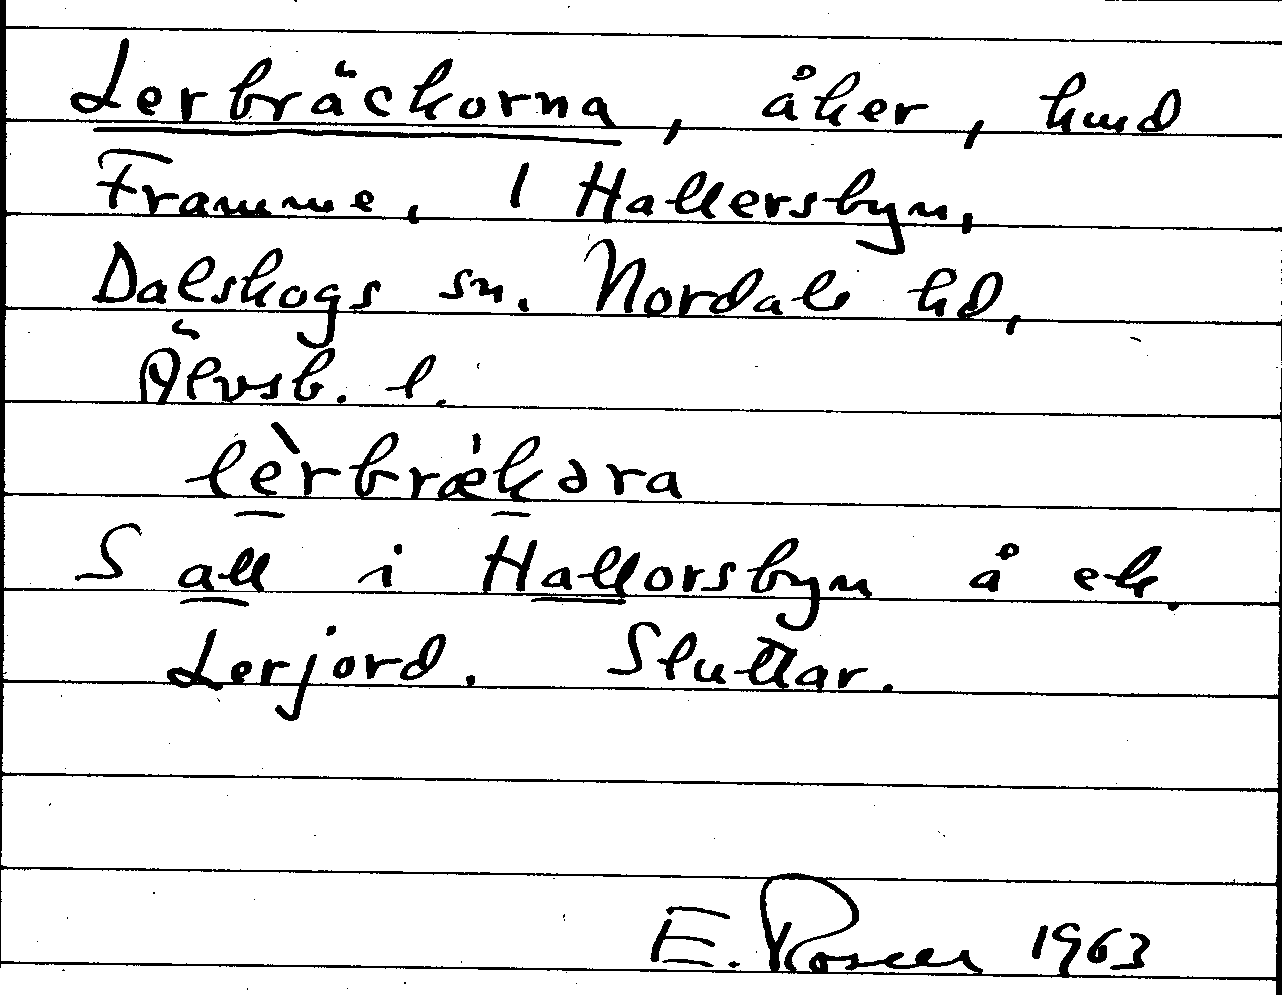 Lerbräckorna, åker, hmd
Framme, 1 Hallersbyn,
Dalskogs sn. Nordals hd,
Älvsb. l.
lèrbræ̀kəra
S all i Hallorsbyn å ek.
Lerjord. Sluttar.
E. Rosell 1963